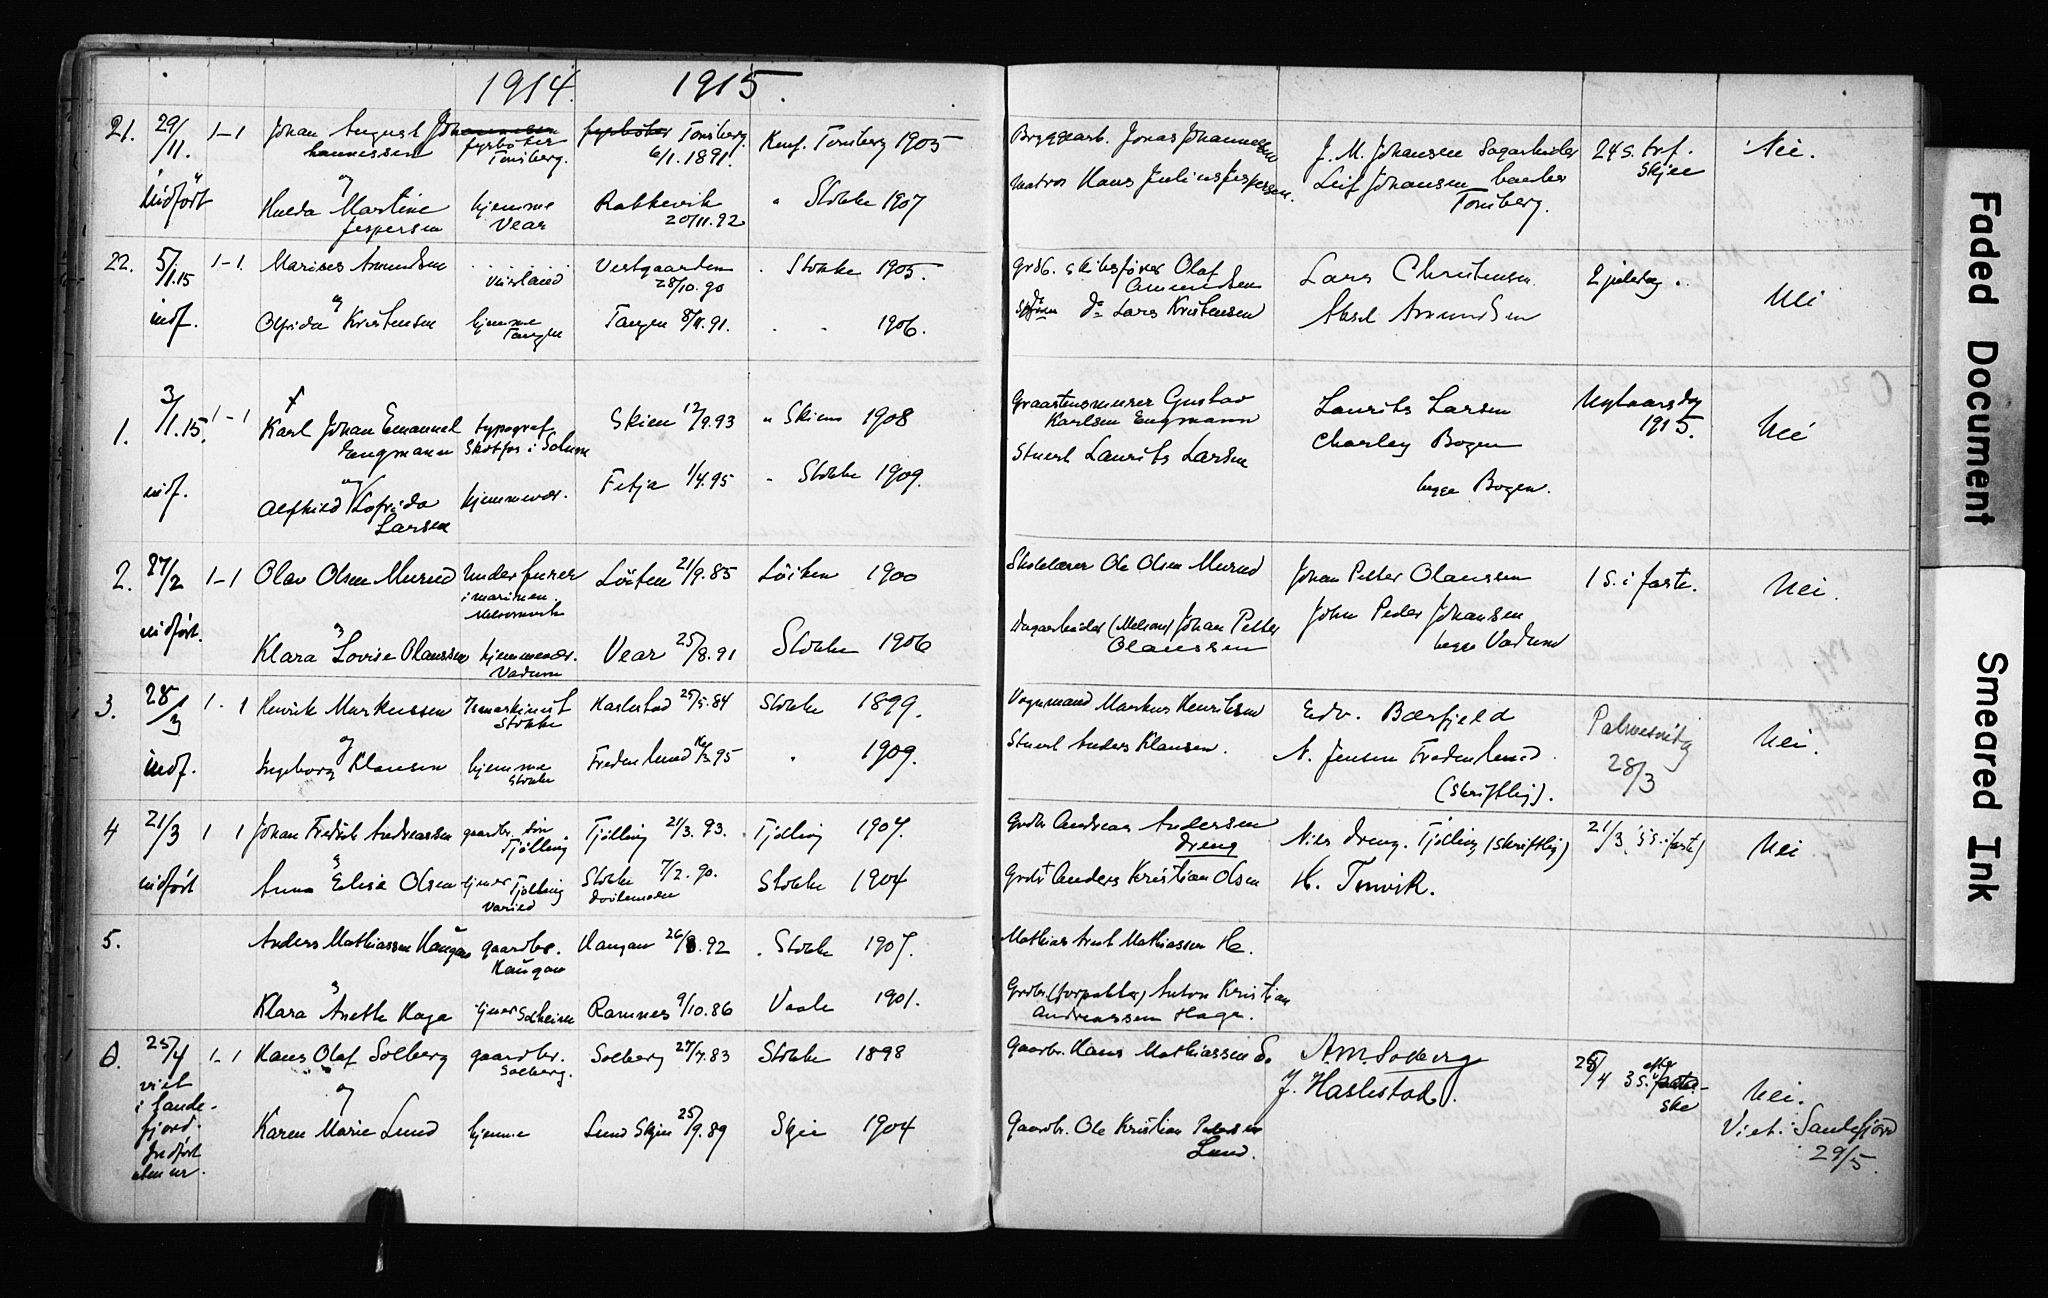 1914. 1915.
21. 29/11. 1-1 Johan August Johannessen fyrbøter Tønsberg. fyrbøter Tønsberg 6/1. 1891. Konf. Tønsberg 1905 Bryggearb. Jonas Johannessen J. M. Johansen Sagarbeider 24 s. tref. Nei.
skjee
indført og Matros Hans Julius Jespersen. Leif Johansen
Hulda Martine Jespersen hjemme Vear Rakkevik 20/11.92 " Stokke 1907 Tønsberg.
22. 5/1.15 1-1. Marius Amundsen Vestgaarden 28/10.90 . Stokke 1905. Grdb. skibsfører Olaf Amundsen Lars Christensen 2 juledag. Nei
indf. og
Olfrida Kristensen hjemme Tangen Tangen 8/11.91. " " 1906. do Lars Kristensen Aksel Amundsen
1. 3/1.15. 1-1 Karl Johan Emanuel Engmann typograf Skotfos i Solum Skien 12/9.93 " Skiens 1908 Gustav Karlsen Engmann Laurits Larsen Nytaarsdag 1915. Nei
indf. og
Larsen hjemmevær. Fetja 1/4.95 " Stokke 1909. Stuert Laurits Larsen Charley Bogen
begge Bogen.
2. 27/2 1-1 Olav Olsen Murud Underfurer i marinen. Løiten 21/9.85 Løiten 1900 Skolelærer Ole Olsen Murud Johan Petter Olaussen 1 s. i faste. Nei.
indført. og
Klara Lovise Olaussen hjemmevær. Vadum Vear 25/8.91 Stokke 1906 (Melsom) Johan Petter Olaussen John Peder Johansen
begge Vadum
3. 28/3 1-1 Henrik Markussen Stokke Haslestad 25/5.84 Stokke 1899. Vognmand Markus Henriksen Edv. Bærfjeld Palmesøndag 28/3 Nei.
indf. og
Ingeborg Klausen hjemme Stokke Fredenlund " 1909. Stuert Anders Klausen. N. Jensen Fredenlund
(skriftlig).
4 21/3 1 1 Johan Fredrik Andreassen gaardbr. søn Tjølling Tjølling 21/3.93. Tjølling 1907. Grdbr Andreas Andersen Dreng Nils Dreng. Tjølling (skriftlig) 21/3. 5 s. i faste) Nei
indført og
Anna Elise Olsen tjener Tjølling Stokke 7/2.90. Stokke 1904 Anders Kristian Olsen H. Tenvik.
5. Anders Mathiassen Haugan gaardbr. Haugan Haugan 26/8.92 . Stokke 1907. Mathiassen Ha.
og
Klara Anette Haga tjener Solheim Ramnes 9/10.86 Vaale 1901. Grdbr. (forpakter) Anton Kristian Andreassen Haga.
6. 25/4 1-1 Hans Olaf Solberg gaardbr. Solberg. Solberg 27/7.83 Stokke 1898 Gaardbr. Hans Mathiassen S. A.M. Solberg 25/4 3 s. efter paaske Nei.
viet i Sandefjord. Indført og J. Haslestad.
Karen Marie Lund hjemme Lund Skjee 25/9.89 Skjee 1904 Gaardbr. Ole Kristian Pedersen Lund. Viet. Sandefjord 29/5.
Faded Document
Smeared Ink